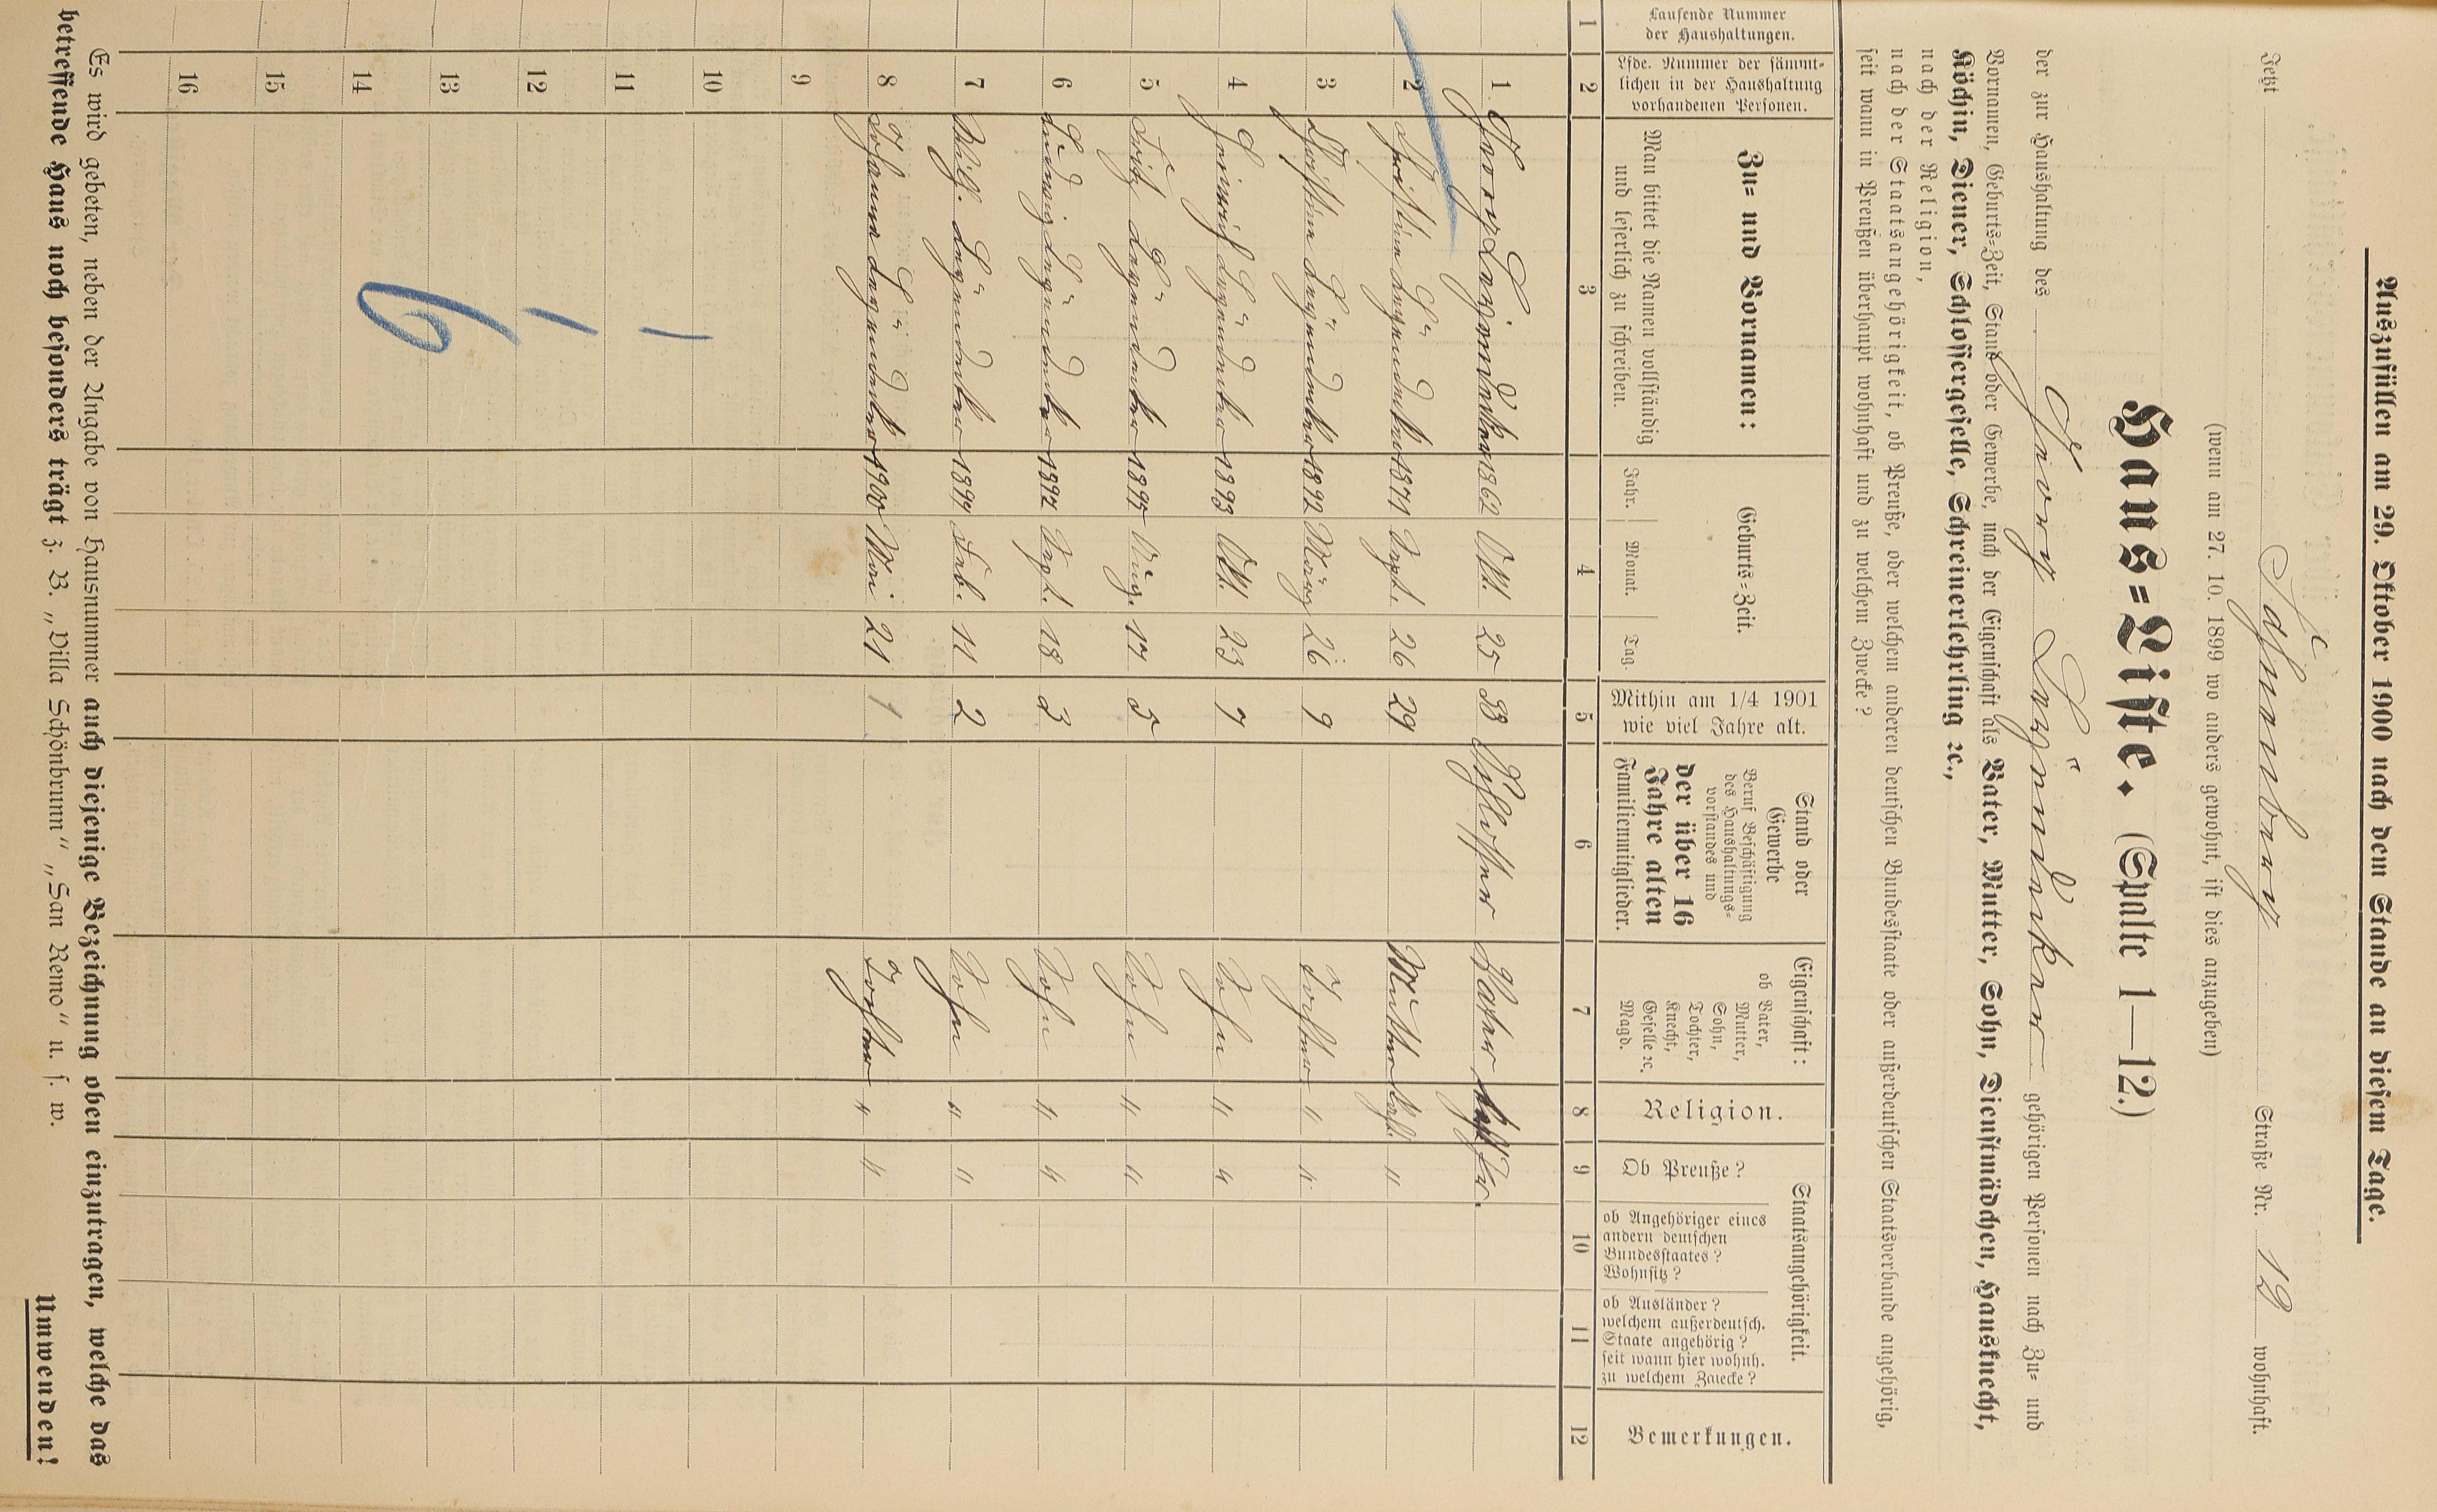 Auszufüllen am 29. Oktober 1900 nach dem Stande an diesem Tage.
Jetzt Schwanberg Straße Nr. 12 wohnhaft.
(wenn am 27. 10. 1899 wo anders gewohnt, ist dies anzugeben)
Haus=Liste. (Spalte 1—12.)
der zur Haushaltung des Georg gehörigen Personen nach Zu= und
Vornamen, Geburts=Zeit, Stand oder Gewerbe, nach der Eigenschaft als Vater, Mutter, Sohn, Dienstmädchen, Hausknecht,
Köchin, Diener, Schlossergeselle, Schreinerlehrling ꝛc.,
nach der Religion,
nach der Staatsangehörigkeit, ob Preuße, oder welchem anderen deutschen Bundesstaate oder außerdeutschen Staatsverbande angehörig,
seit wann in Preußen überhaupt wohnhaft und zu welchem Zwecke?
Laufende Nummer der Haushaltungen.
Lfde. Nummer der sämmt=lichen in der Haushaltung vorhandenen Personen.
Zu= und Vornamen:
Man bittet die Namen vollständig
und leserlich zu schreiben.
Geburts=Zeit.
Jahr. Monat. Tag.
Mithin am 1/4 1901
wie viel Jahre alt.
Stand oder
Gewerbe
Beruf Beschäftigung
des Haushaltungs=
vorstandes und
der über 16
Jahre alten
Familienmitglieder.
Eigenschaft:
ob Vater,
Mutter,
Sohn,
Tochter,
Knecht,
Geselle ꝛc.
Magd.
Religion.
Staatsangehörigkeit.
Ob Preuße?
ob Angehöriger eines
andern deutschen
Bundesstaates?
Wohnsitz?
ob Ausländer?
welchem außerdeutsch.
Staate angehörig?
seit wann hier wohnh.
zu welchem Zwecke?
Bemerkungen.
1 2 3 4 5 6 7 8 9 10 11 12
1 Georg 1862 Okt. 25 38 Schlosser Vater kath.
2 1871 Sept. 26 29 Mutter kath. "
3 1892 März 26 9 Tochter " "
4 Heinrich 1893 Okt. 23 7 Sohn " "
5 Fritz 1895 Aug. 17 5 Sohn " "
6 Ludwig 1897 Sept. 18 3 Sohn " "
7 Wilh. 1899 Feb. 11 2 Sohn " "
8 Johanna 1900 Mai 21 1 Tochter " "
9
10
11
12
13
14
15
16
6
Es wird gebeten, neben der Angabe von Hausnummer auch diejenige Bezeichnung oben einzutragen, welche das
betreffende Haus noch besonders trägt z. B. „Villa Schönbrunn" „San Remo" u. s. w.
Umwenden!